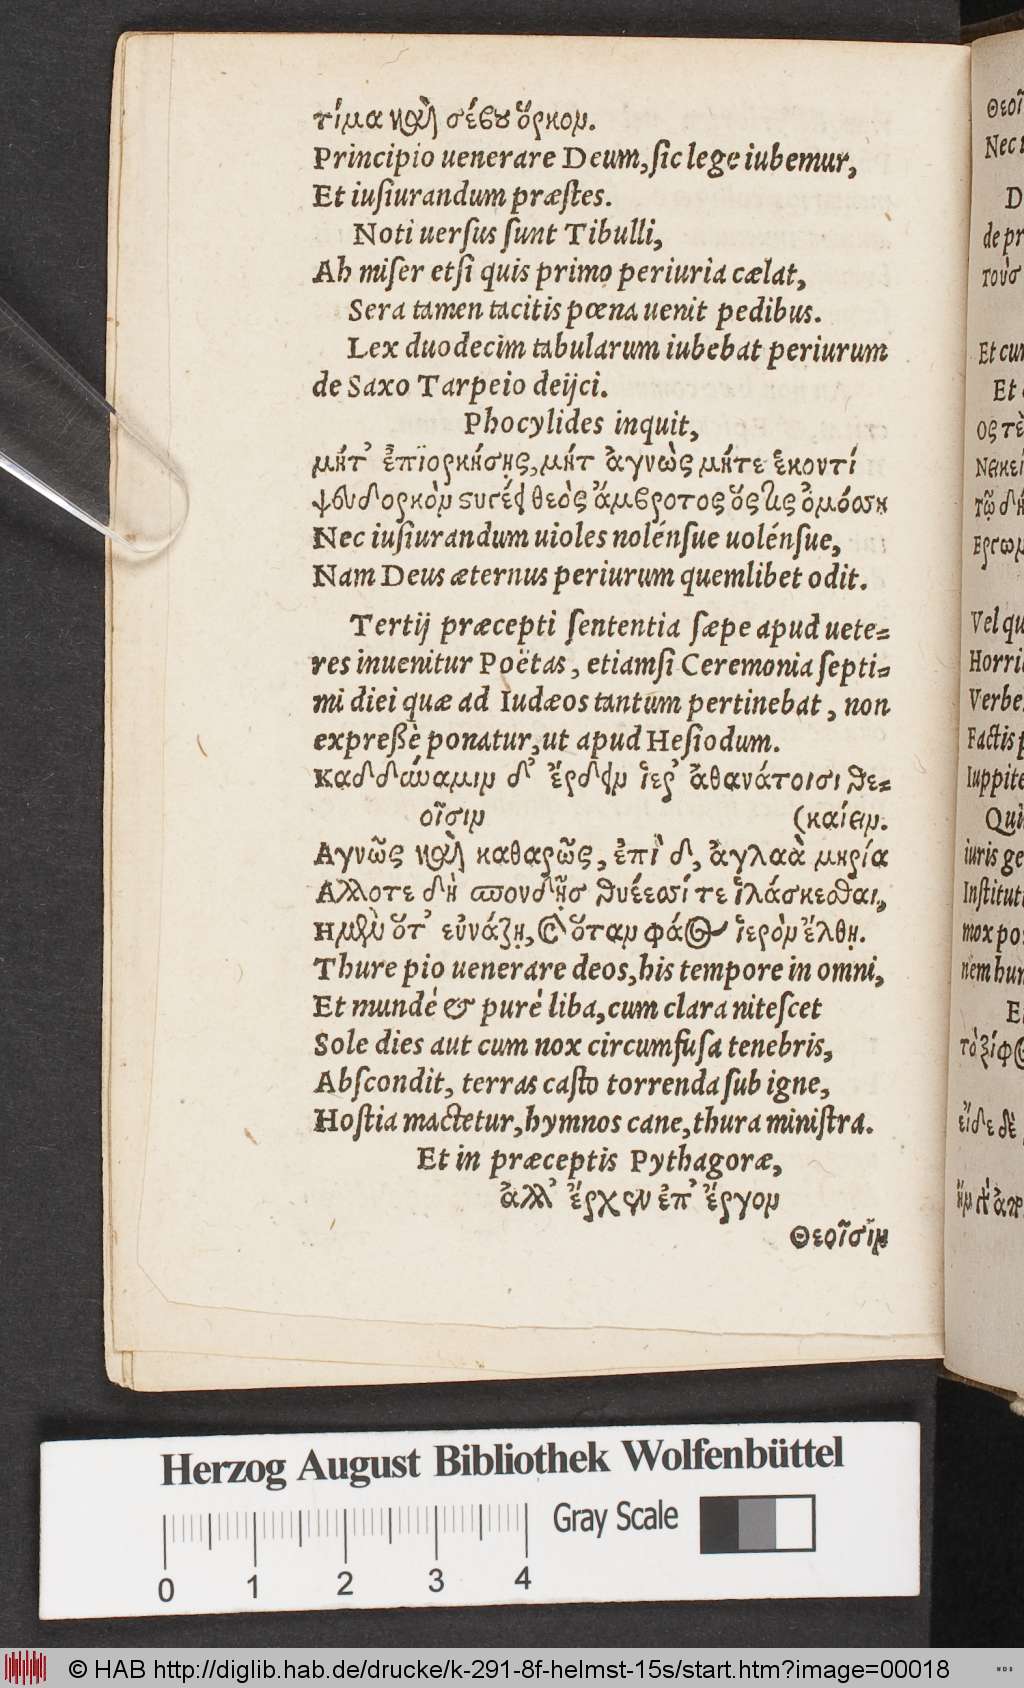 τίμα καὶ σέβου ὅρκον.
Principio uenerare Deum, sic lege iubemur,
Et iusiurandum præstes.
Noti uersus sunt Tibulli,
Ah miser etsi quis primo periuria cælat,
Sera tamen tacitis pœna uenit pedibus.
Lex duodecim tabularum iubebat periurum
de Saxo Tarpeio deijci.
Phocylides inquit,
μήτ' ἐπϊορκήσῃς, μήτ ἀγνὼς μήτε ἑκοντί
ψεύδορκὸν στυγέει θεὸς ἄμβροτος ὅς τις ὀμόσση
Nec iusiurandum uioles nolénsue uolénsue,
Nam Deus æternus periurum quemlibet odit.
Tertij præcepti sententia sæpe apud uete=
res inuenitur Poëtas, etiamsi Ceremonia septi=
mi diei quæ ad Iudæos tantum pertinebat, non
expreßè ponatur, ut apud Hesiodum.
Καδδύναμιν δ' ἔρδειν ἱερ' ἀθανάτοισι θε=
οῖσιν (καίειν.
Αγνῶς καὶ καθαρῶς, ἐπὶ δ, ἀγλαὰ μηρία
Αλλοτε δὴ σπονδῇσ θυέεσσί τε ἱλάσκεσθαι,
Ημὲν ὅτ' εὐνάζῃ, καὶ ὅταν φάος ἱερὸν ἔλθῃ.
Thure pio uenerare deos, his tempore in omni,
Et mundè & purè liba, cum clara nitescet
Sole dies aut cum nox circumfusa tenebris,
Abscondit, terras casto torrenda sub igne,
Hostia mactetur, hymnos cane, thura ministra.
Et in præceptis Pythagoræ,
ἀλλ' ἔρχευ ἐπ' ἔργον
Θεοῖσιν
Herzog August Bibliothek Wolfenbüttel
Gray Scale
0 1 2 3 4
© HAB http://diglib.hab.de/drucke/k-291-8f-helmst-15s/start.htm?image=00018